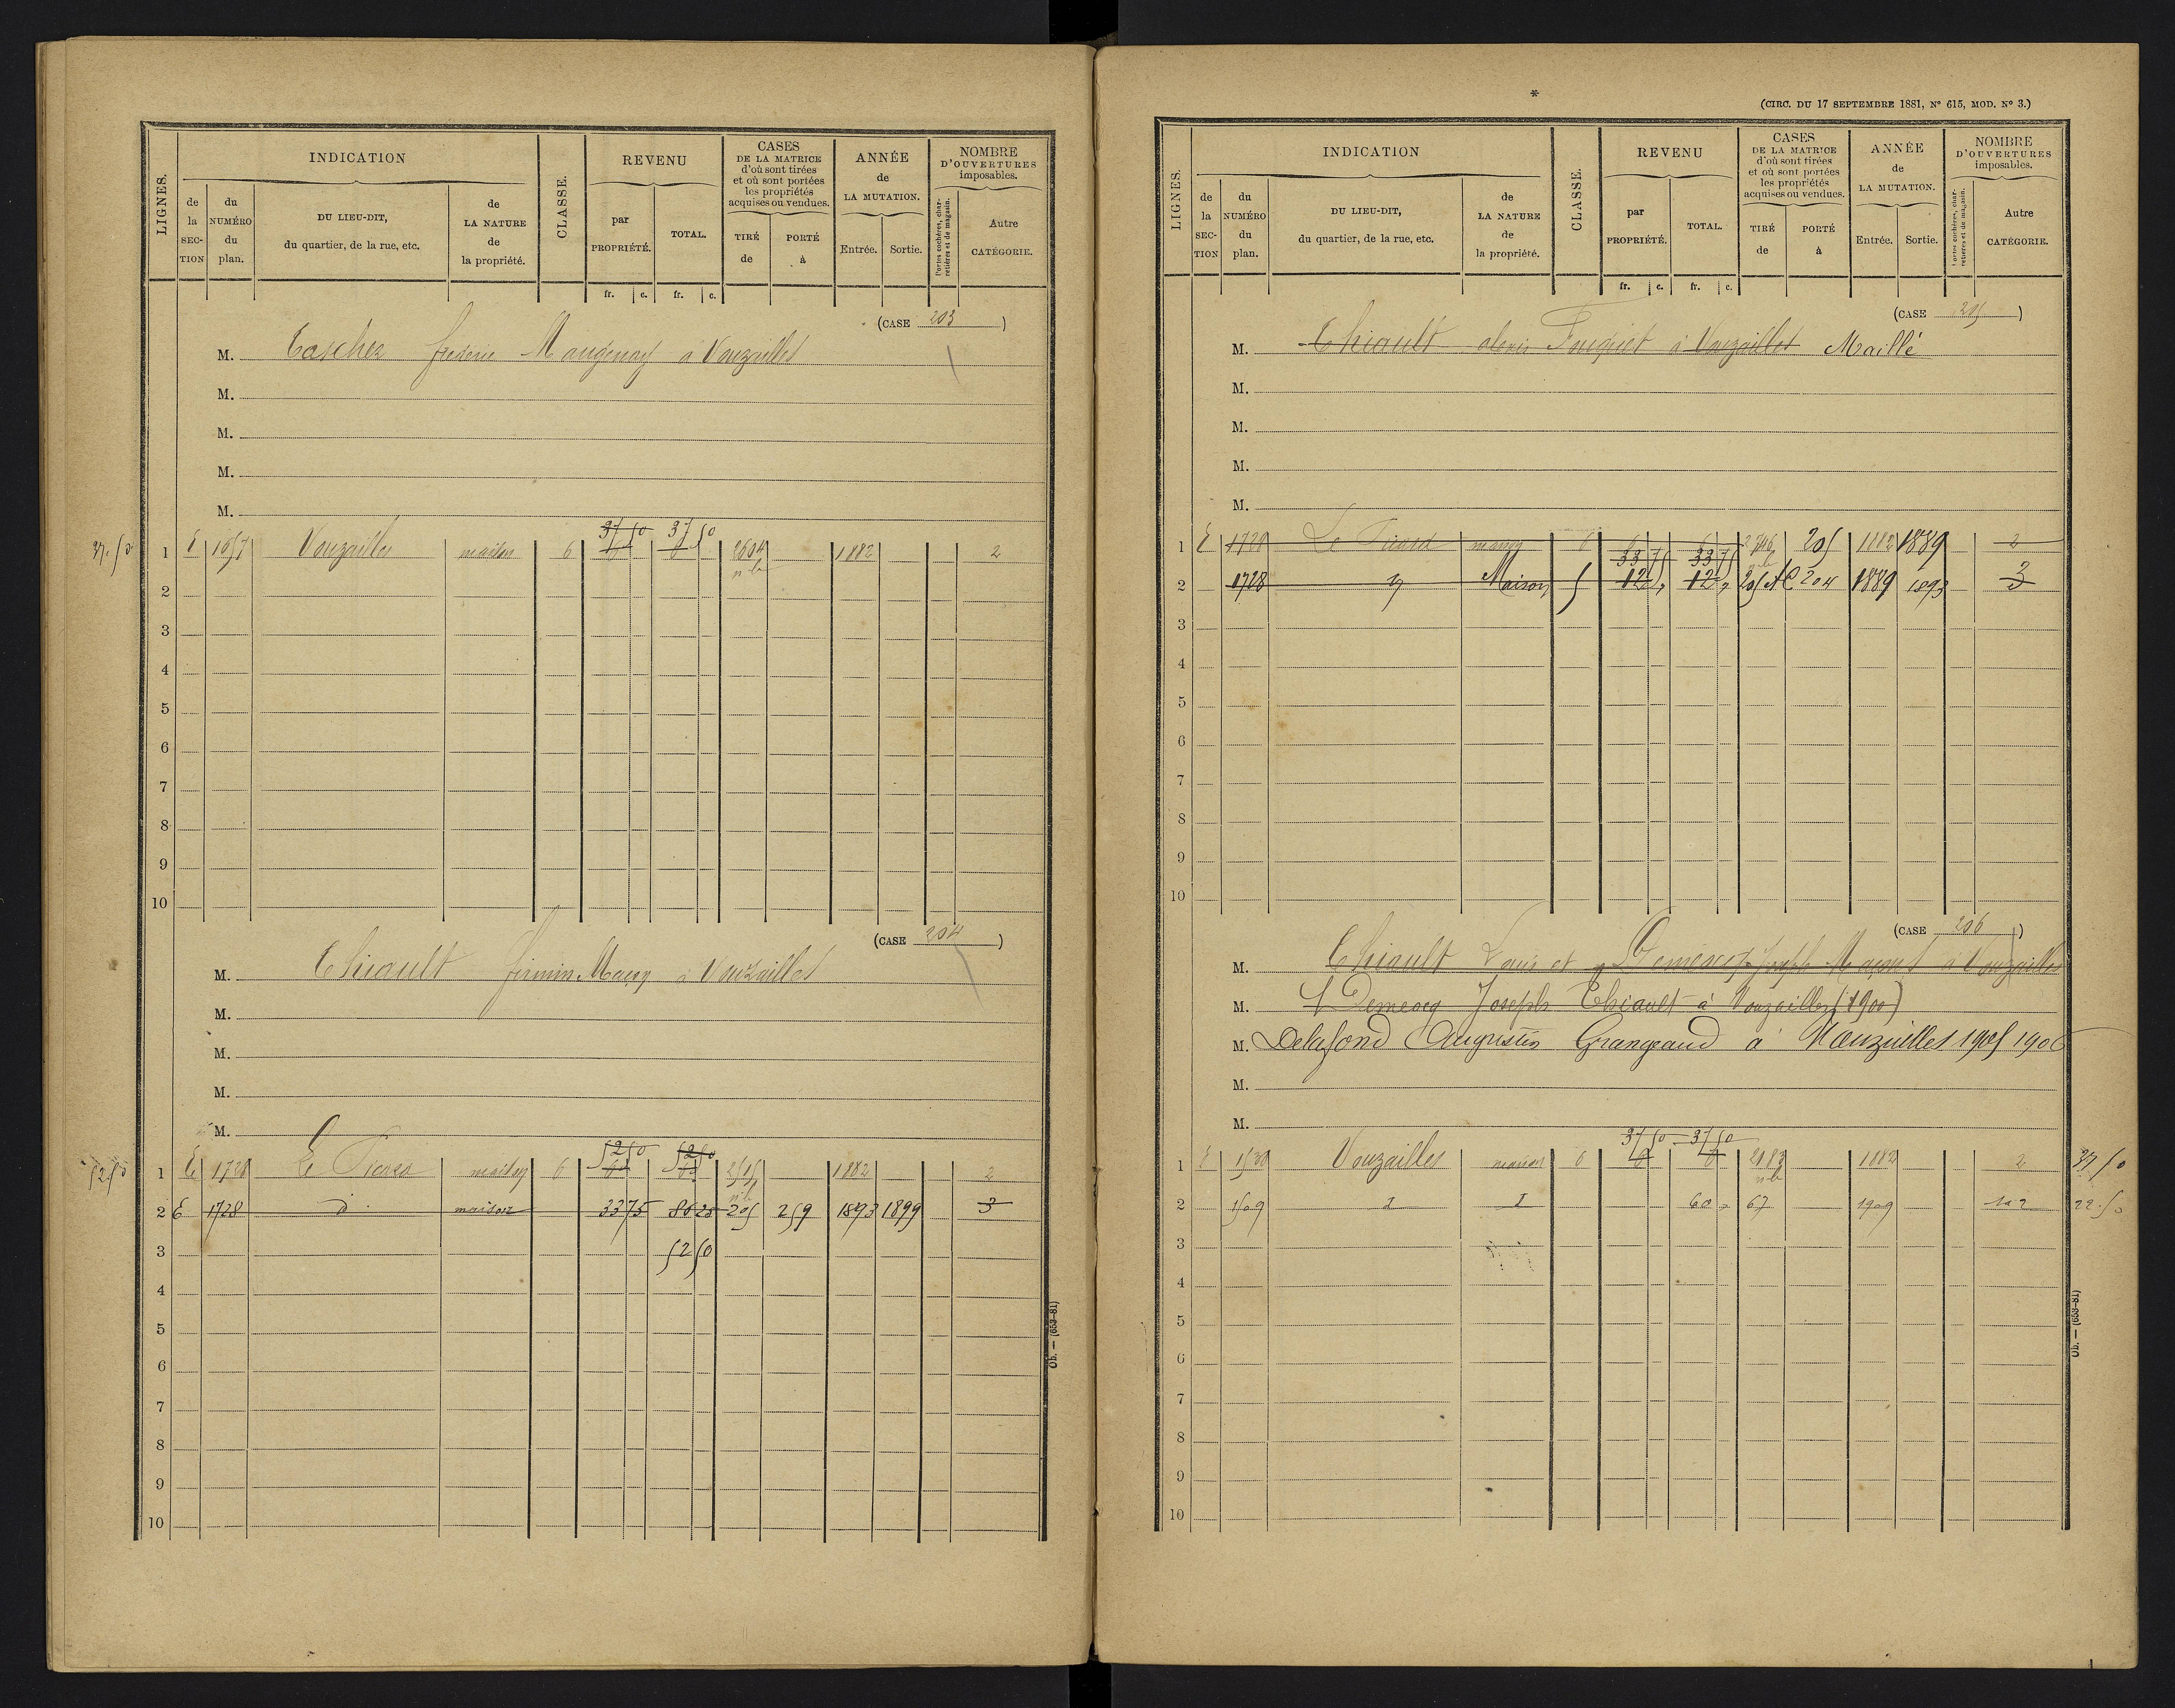 LIGNES.
INDICATION
de la SECTION
du NUMÉRO du plan.
DU LIEU-DIT, du quartier, de la rue, etc.
de LA NATURE de la propriété.
CLASSE.
REVENU
par PROPRIÉTÉ.
TOTAL.
CASES DE LA MATRICE d'où sont tirées et où sont portées les propriétés acquises ou vendues.
TIRÉ de
PORTÉ à
ANNÉE de LA MUTATION.
Entrée.
Sortie.
NOMBRE D'OUVERTURES imposables.
Portes cochères, charretières et de magasin.
Autre CATÉGORIE.
fr. c. fr. c.
(CASE 203)
M. frederic à Vouzailles
M.
M.
M.
M.
37.50 1 E 1057 Vouzailles maison 6 37 50 37 50 2604 1882 2
2
3
4
5
6
7
8
9
10
(CASE 204)
M. Thiault firmin à Vouzailles
M.
M.
M.
M.
52.50 1 E 1728 Le maison 6 52 50 52 50 1882 2
2 E 1728 d° maison 33 75 86 25 205 259 1893 1899 3
3 52 50
4
5
6
7
8
9
10
Ob. — (653-81)
*
(CIRC. DU 17 SEPTEMBRE 1881, N° 615, MOD. N° 3.)
LIGNES.
INDICATION
de la SECTION
du NUMÉRO du plan.
DU LIEU-DIT, du quartier, de la rue, etc.
de LA NATURE de la propriété.
CLASSE.
REVENU
par PROPRIÉTÉ.
TOTAL.
CASES DE LA MATRICE d'où sont tirées et où sont portées les propriétés acquises ou vendues.
TIRÉ de
PORTÉ à
ANNÉE de LA MUTATION.
Entrée.
Sortie.
NOMBRE D'OUVERTURES imposables.
Portes cochères, charretières et de magasin.
Autre CATÉGORIE.
fr. c. fr. c.
(CASE 205)
M. Thiault alexis Fouquet à Vouzailles Maillé
M.
M.
M.
M.
1 E 1728 Le maison 6 205 1882 1889 2
2 1728 Maison 5 33 75 33 75 12 12 205 AC 204 1889 1893 3
3
4
5
6
7
8
9
10
(CASE 206)
M. Thiault Louis et Demeocq Joseph à Vouzailles
M. Demeocq Joseph Thiault à Vouzailles (1900)
M. Delafond Augustin Grangeaud à Vouzailles 1905 1906
M.
M.
1 E 1530 Vouzailles maison 6 37 50 37 50 2183 1882 2 37 50
2 1509 60 67 1909 22.50
3
4
5
6
7
8
9
10
Ob. — (653-81)